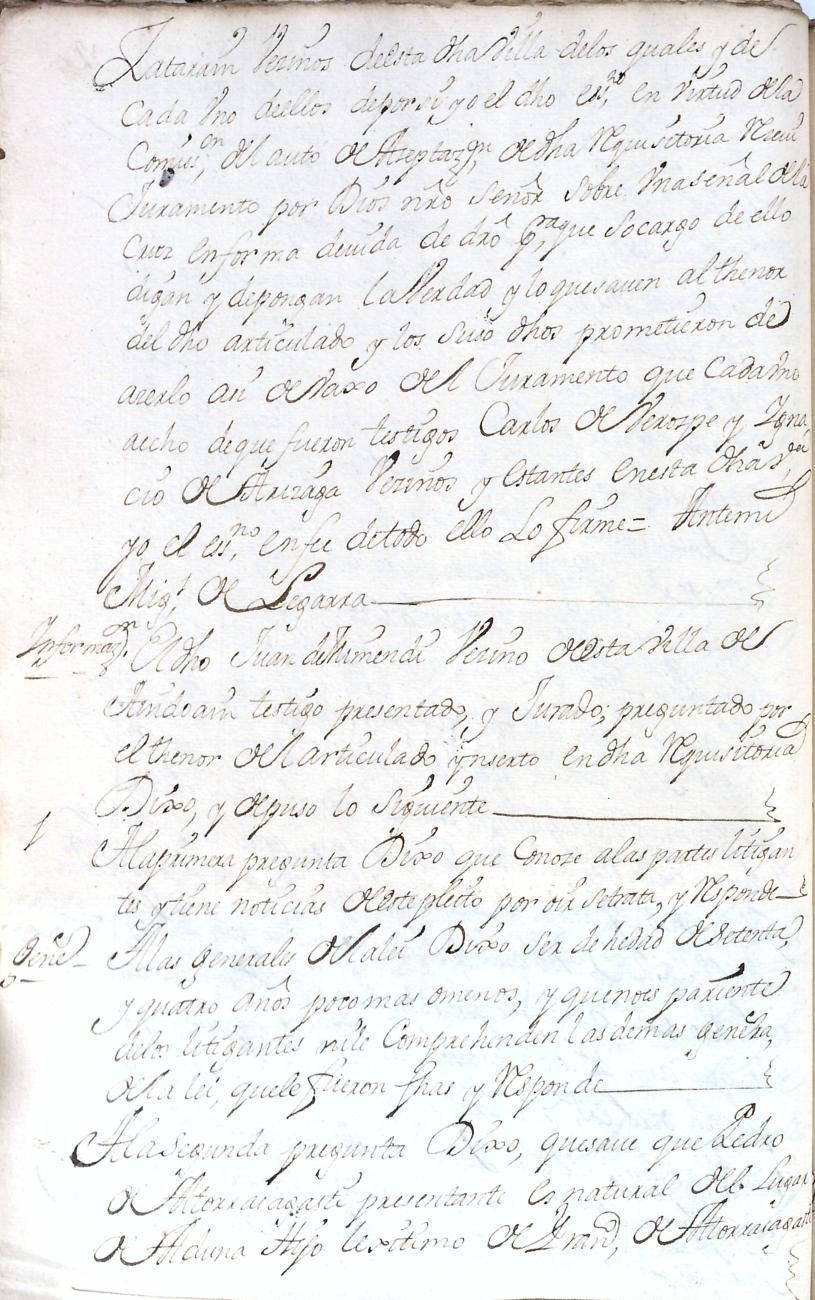 Zatarain Vezinos deesta dha Villa delos quales y de
Cada Vno deellos deporsi yo el dho ess.no en virtud dela
Comiss.on del auto de Azeptaz.on de dha Requisitoria Reciui
Juramento por Dios nrô Señor Sobre Vnaseñal dela
Cruz enforma deuida de drô p.a que Socargo de ello
digan y depongan la Verdad y lo quesauen al thenor
del dho articulado y los Suso dhos prometieron de
azerlo asi devaxo del Juramento que Cada vno
aecho deque fueron testigos Carlos de Verozpe y Igna
cio de Arizaga Vezinos y estantes enesta dha V.a
yo el ess.no enfee detodo ello Lo firme = Antemi
Mig.l de Legarra
Informaz.on El dho Juan de Vezino deesta Villa de
Andoain testigo presentado, y Jurado, preguntado por
el thenor del articulado ynserto en dha Requisitoria
Dixo, y depuso lo Siguiente
1 Alaprimera pregunta Dixo que Conoze alas partes litigan
tes y tiene noticias deestepleito por oir setrata, y Responde
Gene.l Alas generales delalei Dixo Ser de hedad desetenta,
y quatro años poco mas omenos, y quenoes pariente
delos litigantes nile Comprehenden las demas genera,
delalei, quele fueron fhas y Responde
Ala Segunda pregunta Dixo, quesaue que Pedro
de Atorrasagasti presentante es natural del Lugar
de Alduna Hijo lexitimo de Fran.co de Atorrasagasti